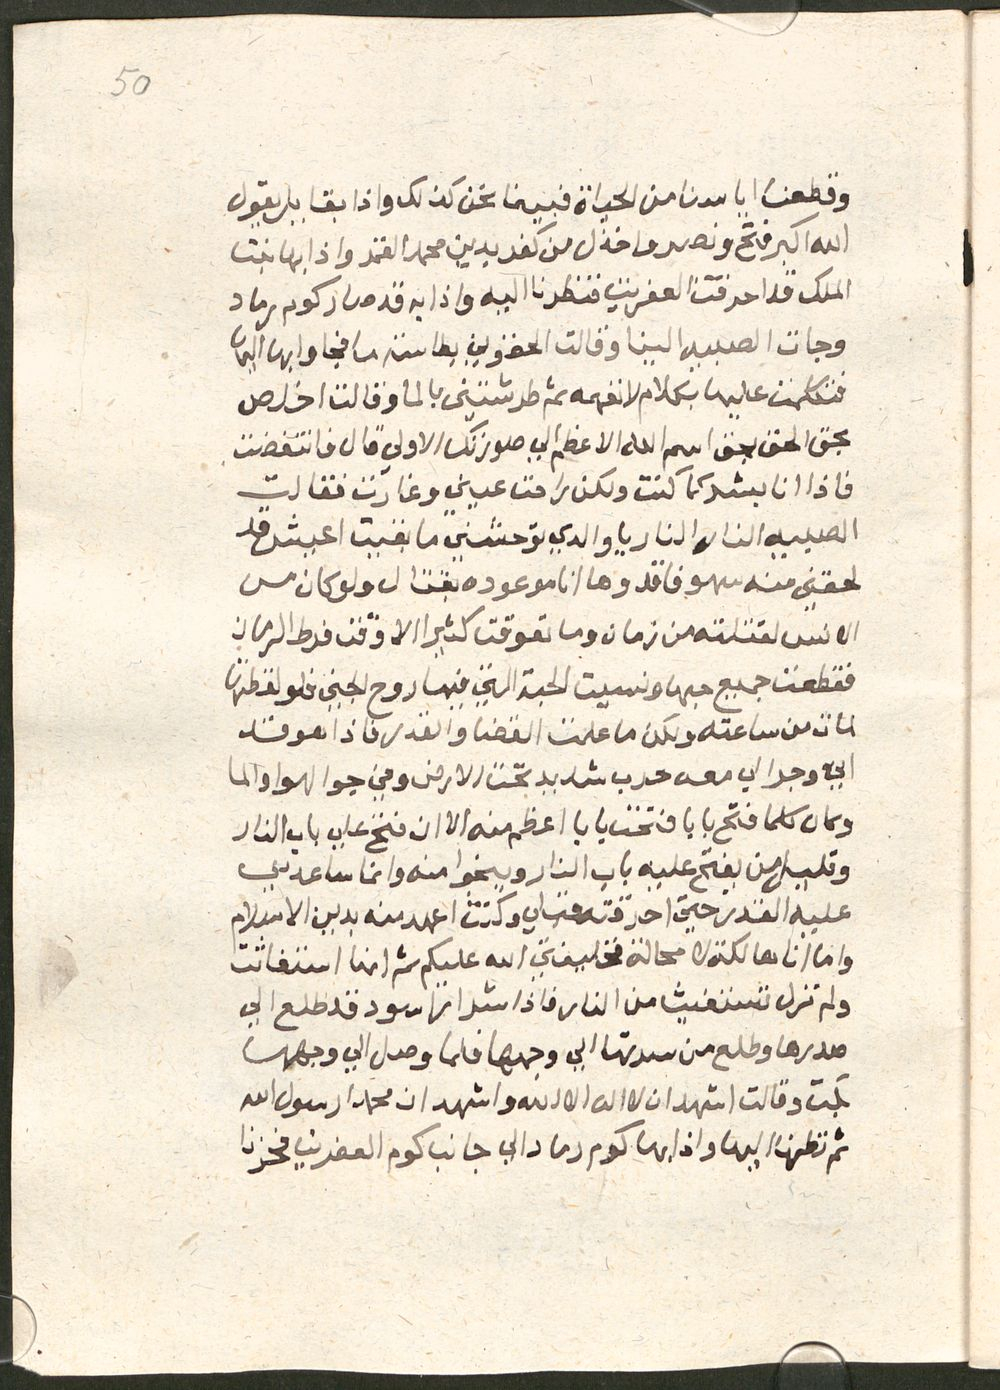 50
وقطعنا اياسنا من الحياة فبينما نحن كذلك واذا بقايل يقول
الله اكبر فتح ونصر واخذل من كفر بدين محمد القمر واذا بها بنت
الملك قد احرقت العفريت فنظرنا اليه واذا به قد صار كوم رماد
وجات الصبيه الينا وقالت الحقوني بطاسة ما فجاوا بها اليها
فتكلمت عليها بكلام لا نفهمه ثم طرشتني بالما وقالت اخلص
بحق الحق بحق اسم الله الاعظم الي صورتك الاولي قال فانتفضت
فاذا انا بشر كما كنت ولكن راحت عيني فقالت
الصبيه النار النار يا والدي توحشني ما بقيت اعيش قد
لحقني منه سهو فاقد وها انا موعوده بقتال ولو كان من
الانس لقتلته من زمان وما تعوقت كثيرا الا وقت فرط الرمان
فقطعت جميع حبها ونسيت الحبة الذي فيها روح الجني فلو لقطتها
لمات من ساعته ولكن ما علمت القضا والقدر فاذا هو قد
اتي وجرا لي معه حرب شديد تحت الارض وفي جو الهوا والما
وكان كلما فتح بابا فتحت بابا اعظم منه الا ان فتح علي باب النار
وقليل من يفتح عليه باب النار وينجوا منه وانما ساعدني
عليه القدر حتي احرقته قبلي وكنت اعهد منه بدين الاسلام
واما انا هالكة لا محالة فخليفتي الله عليكم ثم انها استغاثت
ولم تزل تستغيث من النار فاذا شرار اسود قد طلع الي
صدرها وطلع من صدرها الي وجهها فلما وصل الي وجهها
بكت وقالت اشهد ان لا اله الا الله واشهد ان محمدا رسول الله
ثم نظرنا اليها واذا بها كوم رماد الي جانب كوم العفريت فحزنا